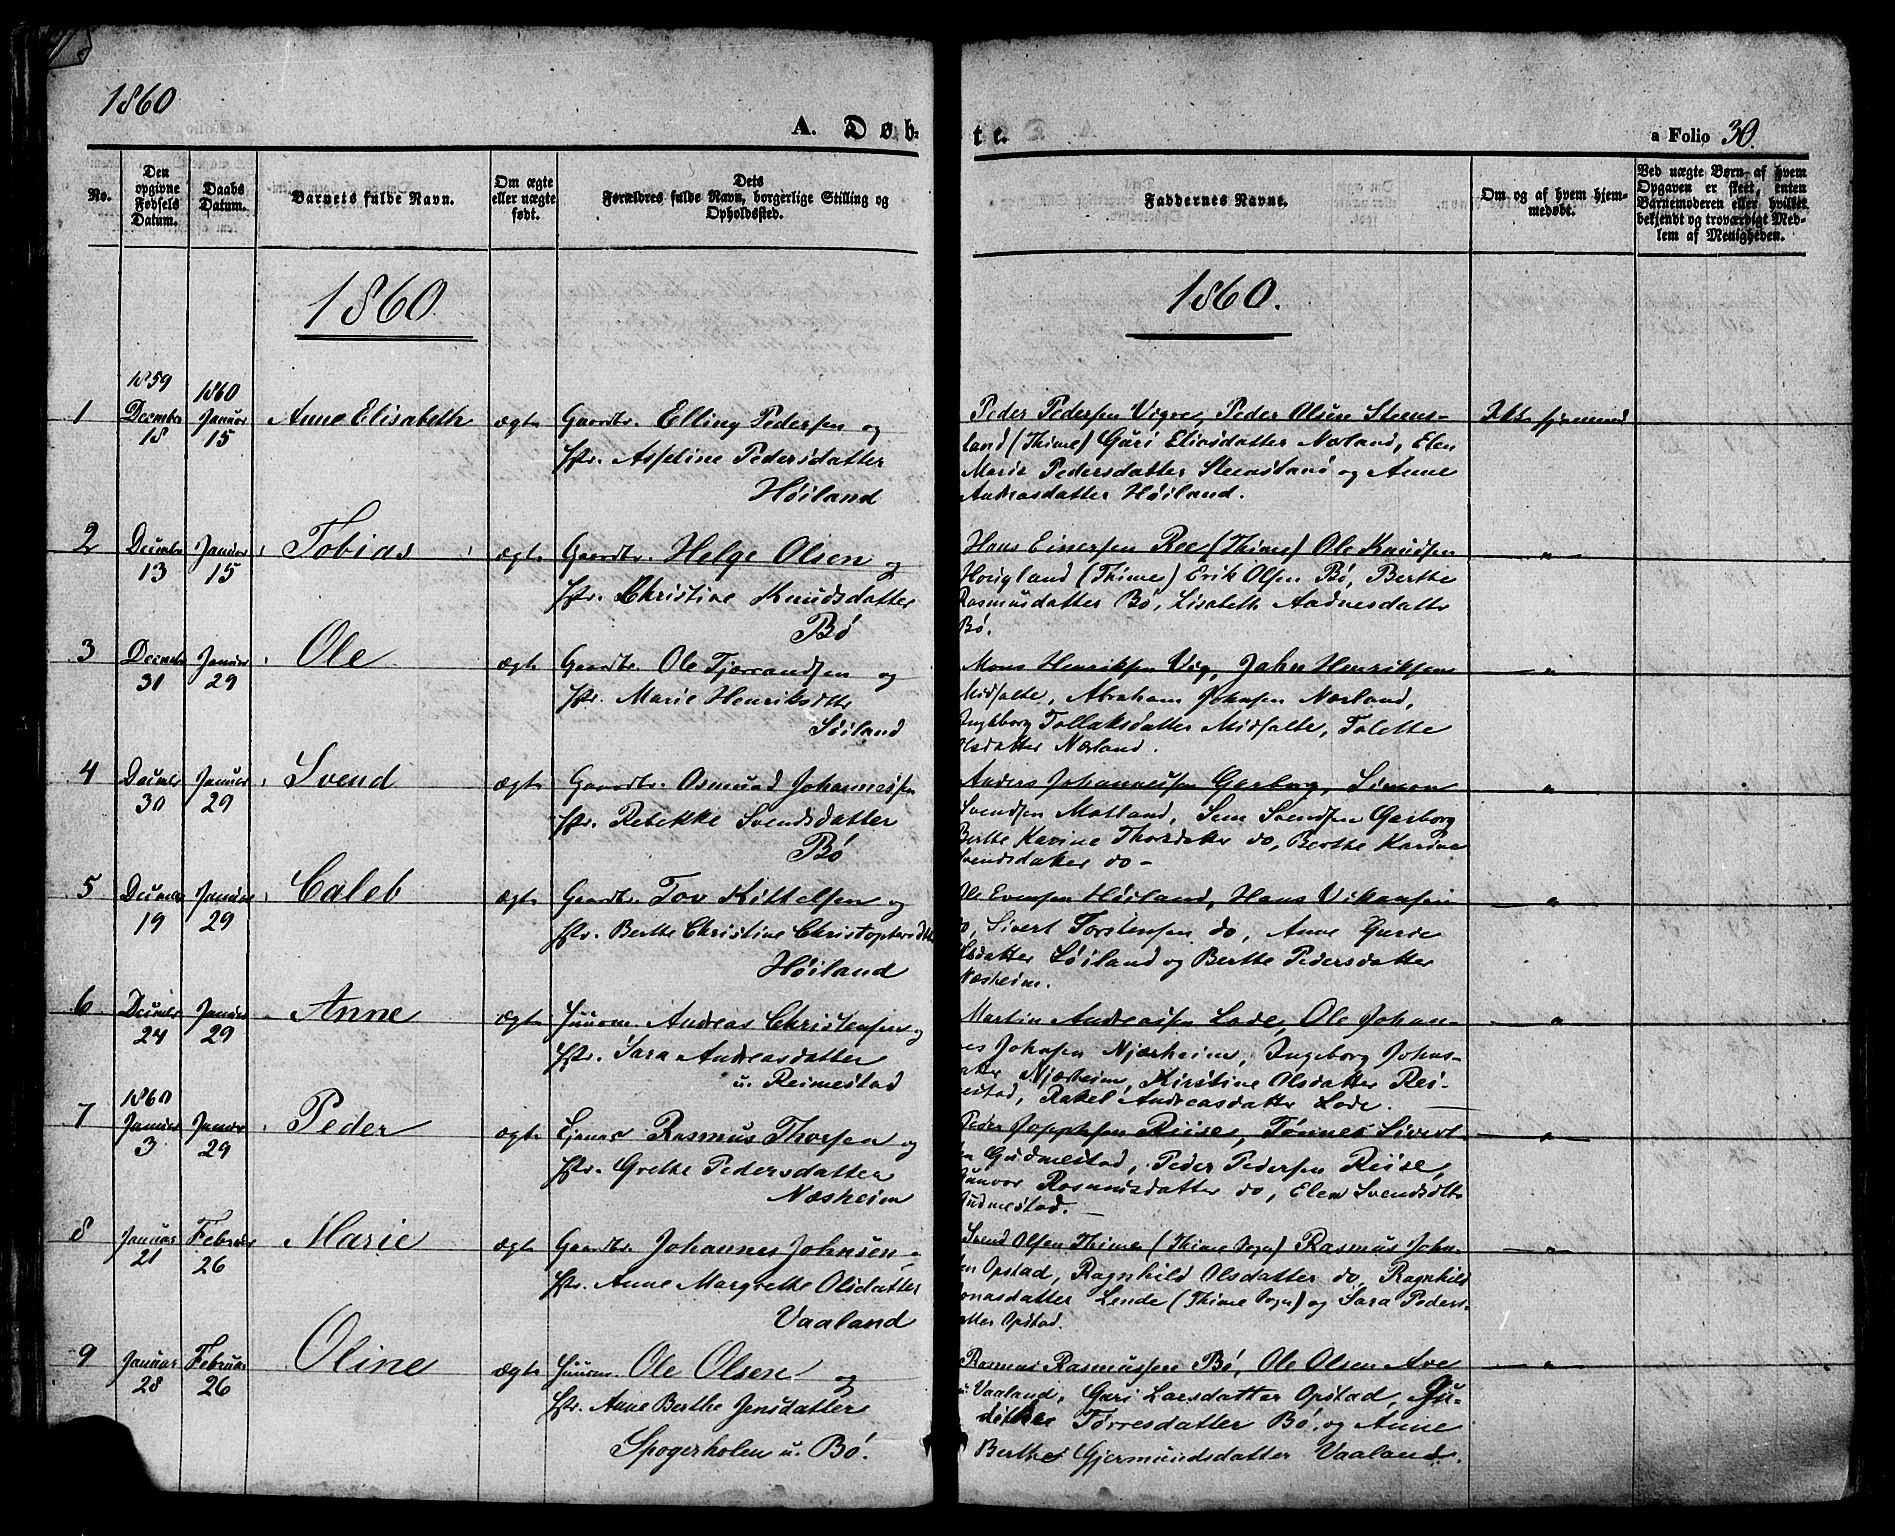 1860
A. Døb-
te.
a Folio 30.
No.
Den opgivne Fødsels Datum.
Daabs Datum.
Barnets fulde Navn.
Om ægte eller uægte født.
Dets Forældres fulde Navn, borgerlige Stilling og Opholdssted.
Faddernes Navne.
Om og af hvem hjemmedøbt.
Ved uægte Børn af hvem Opgaven er skett, enten Barnemoderen eller hvilket bekjendt og troværdigt Medlem af Menigheden.
1860.
1860.
1 1859 December 18 1860 Januar 15 Anne Elisabeth ægte Gaardbr. Elling Pedersen og
Hstr. Asseline Pedersdatter
Høiland
Peder Pedersen Vigre, Peder Olsen Steens-
land (Thime) Guri Eliasdatter Nærland, Elen
Marie Pedersdatter Steensland og Anne
Andreasdatter Høiland.
Ikke hjemmed
2 December 13 Januar 15 Tobias ægte Gaardbr. Helge Olsen og
Hstr. Christine Knudsdatter
Bø
Hans Einersen Ree (Thime) Ole Knudsen
Hougland (Thime) Erik Olsen Bø, Berthe
Rasmusdatter Bø, Lisabeth Aadnesdatter
Bø.
— " —
3 December 31 Januar 29 Ole ægte Gaardbr. Ole Tjorrandsen og
Hstr. Marie Henriksdtr
Søiland
Mons Henriksen Vig, John Henriksen
Midsalte, Abraham Johnsen Nærland,
Ingeborg Tollaksdatter Midsalte, Tolette
Olsdatter Nærland.
— " —
4 December 30 Januar 29 Svend ægte Gaardbr. Osmund Johannessen
Hstr. Rebekke Svendsdatter
Bø
Anders Johannessen Garborg, Simon
Svendsen Motland, Sem Svendsen Garborg
Berthe Karine Thorsdatter do, Berthe Karine
Svendsdatter do -
— " —
5 December 19 Januar 29 Caleb ægte Gaardbr. Tov Kittelsen og
Hstr. Berthe Christine Christophersdtr
Høiland
Ole Evensen Høiland, Hans Vikansen
do, Sivert Torstensen do, Anne Gurde
Olsdatter Søiland og Berthe Pedersdatter
Næsheim.
— " —
6 December 24 Januar 29 Anne ægte Huusm. Andreas Christensen og
Hstr. Sara Andreasdatter
u. Reimestad
Martin Andreassen Lode, Ole Johan-
nes Johnsen Njærheim, Ingeborg Johns-
datter Njærheim, Kirstine Olsdatter Rei-
mestad, Rakel Andreasdatter Lode.
— " —
7 1860 Januar 3 Januar 29 Peder ægte Rasmus Thorsen og
Hstr. Grethe Pedersdatter
Næsheim
Peder Joppesen Reise, Tønnes Sivert-
sen Gudmestad, Peder Pedersen Reise,
Gunvor Rasmusdatter do, Elen Svendsdtr
Gudmestad.
— " —
8 Januar 21 Februar 26 Marie ægte Gaardbr. Johannes Johnsen
Hstr. Anne Margrethe Olsdatter
Vaaland
Svend Olsen Thime (Thime Sogn) Rasmus John-
sen Opstad, Ragnhild Olsdatter do, Ragnhild
Jonasdatter Lende (Thime Sogn) og Sara Peders-
datter Opstad.
— " —
9 Januar 28 Februar 26 Oline ægte Huusm. Ole Olsen og
Hstr. Anne Berthe Jensdatter
Spogerholen u. Bø.
Rasmus Rasmussen Bø, Ole Olsen Ave
u. Vaaland, Guri Larsdatter Opstad, Gu-
Torresdatter Bø, og Anne
Berthe Gjermundsdatter Vaaland.
— " —